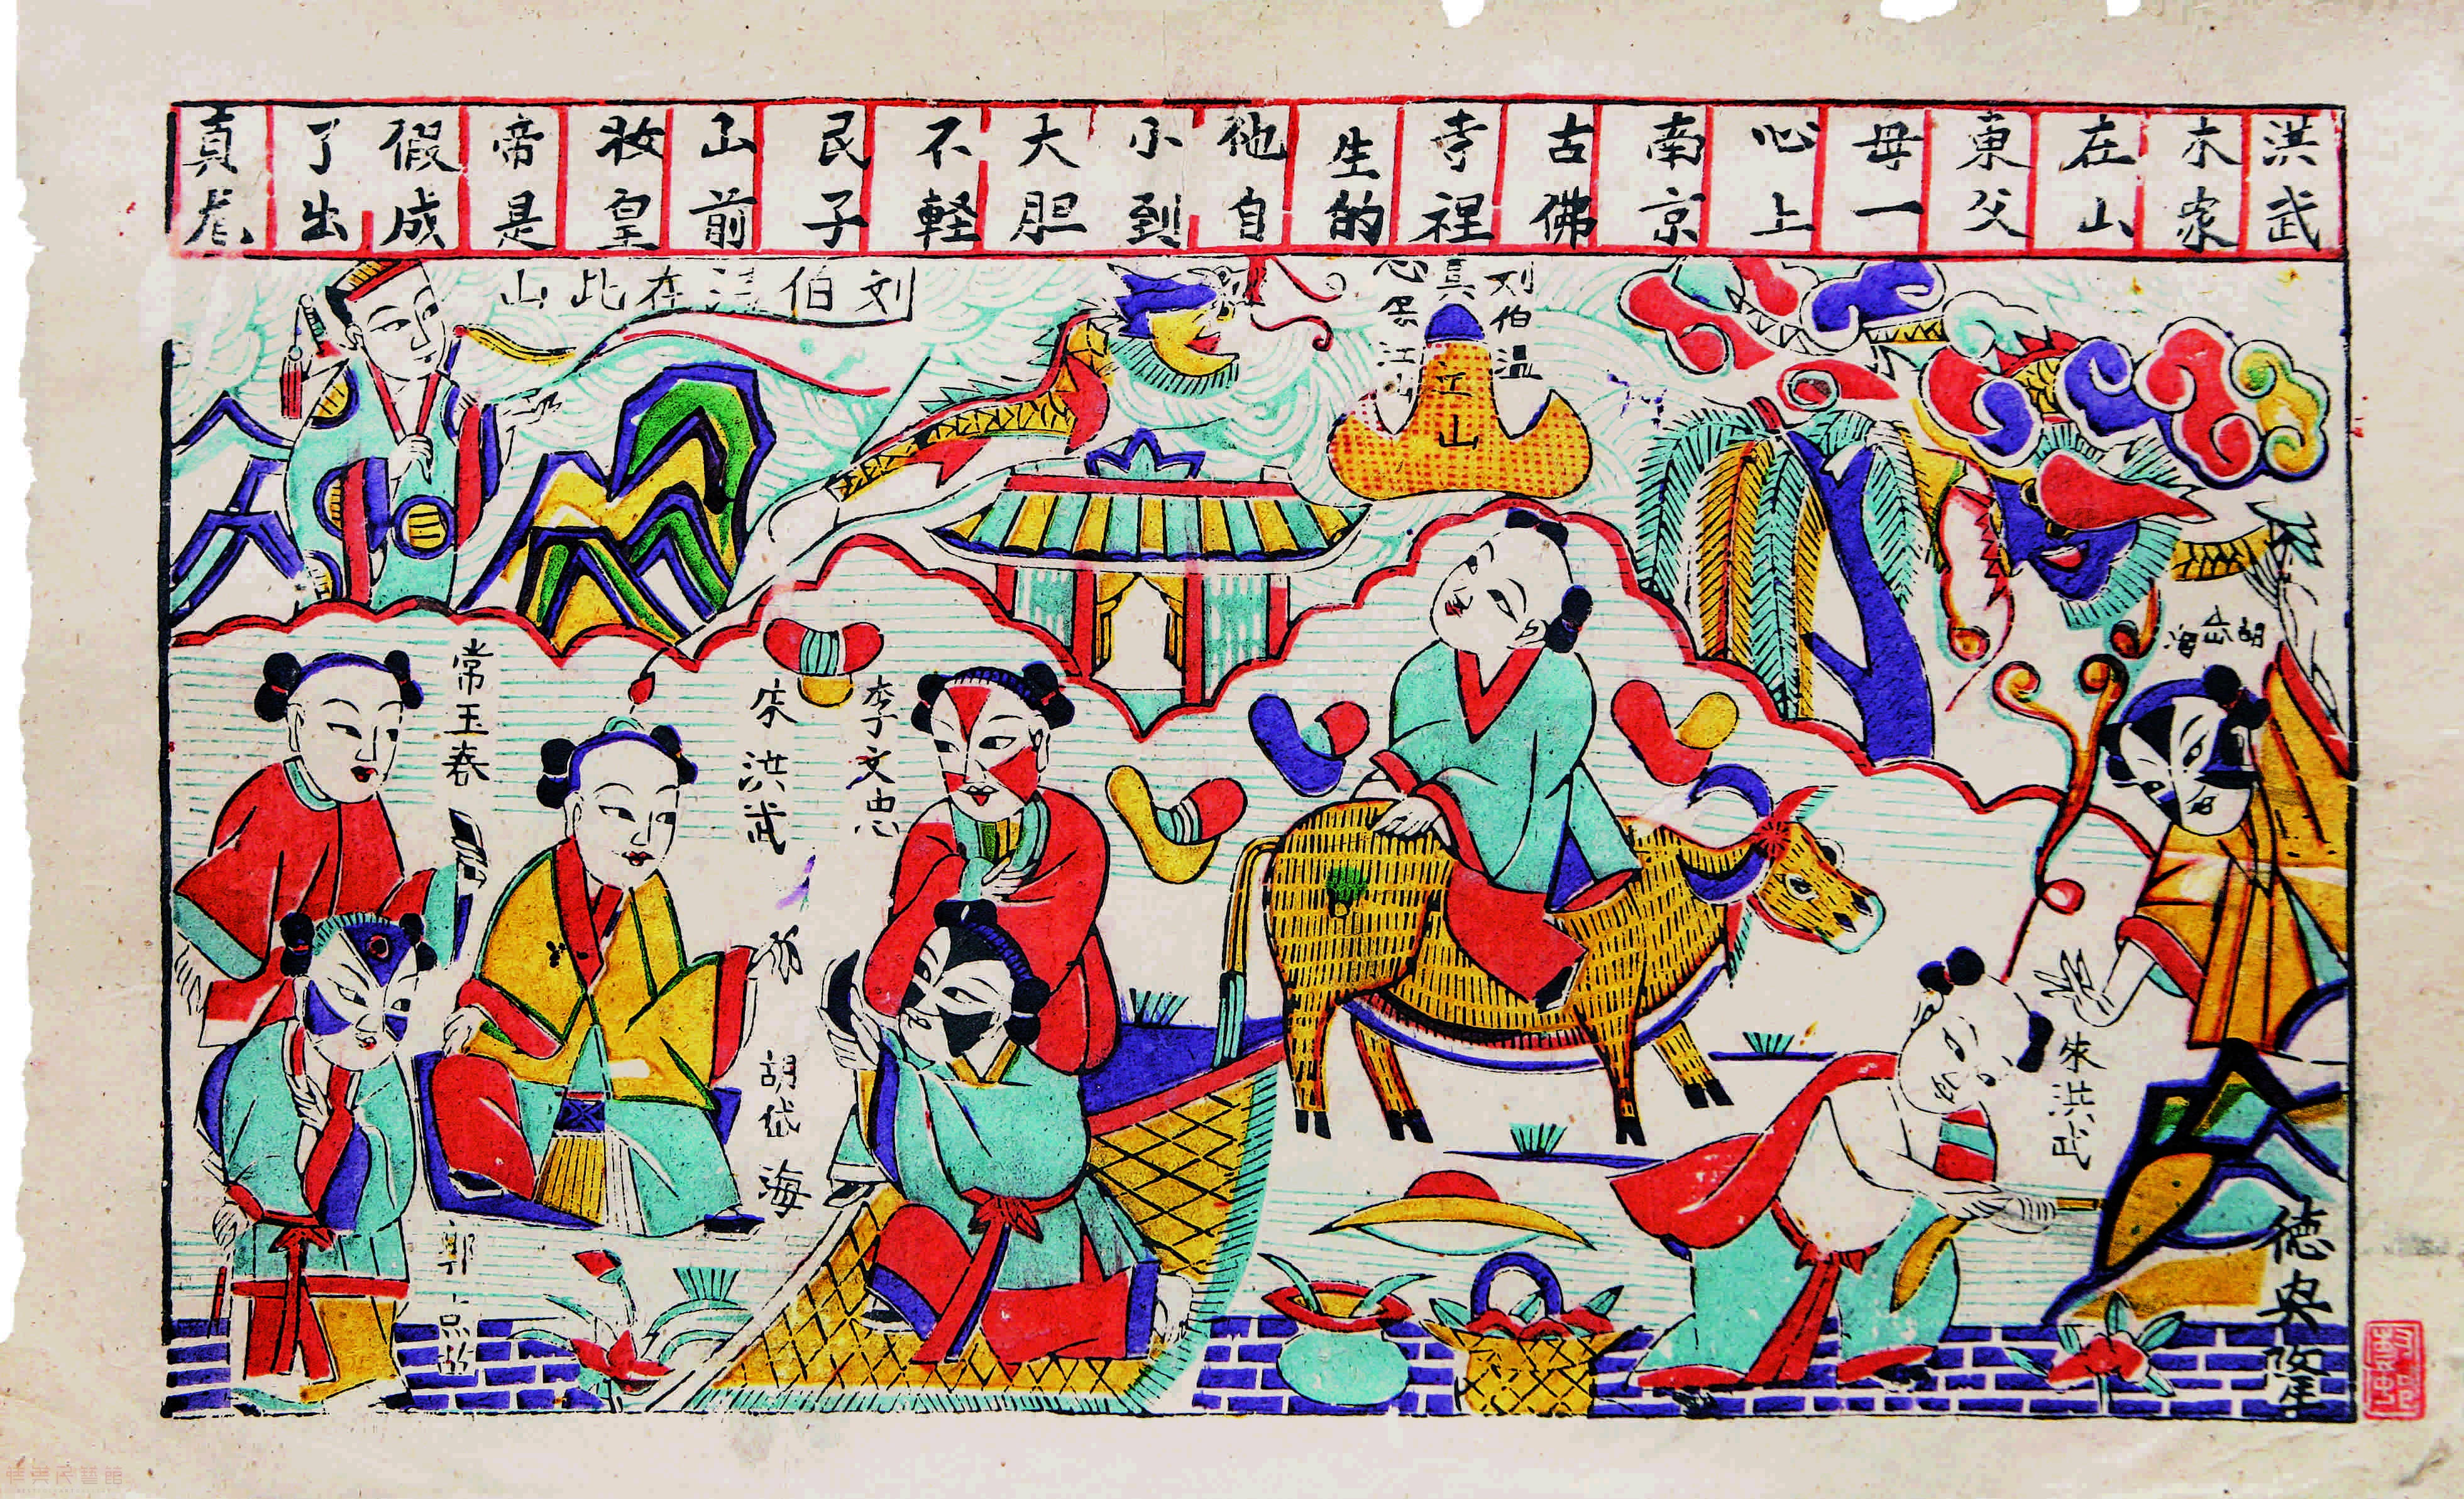 洪武
木家
在山
東父
母一
心上
南京
古佛
寺裡
生的
他自
小到
大胆
不軽
民子
山前
妝皇
帝是
假成
了出
真龙
刘伯温在此山
刘伯温
江山
胡岱海
常玉春
朱洪武
李文忠
胡岱海
朱洪武
德典隆